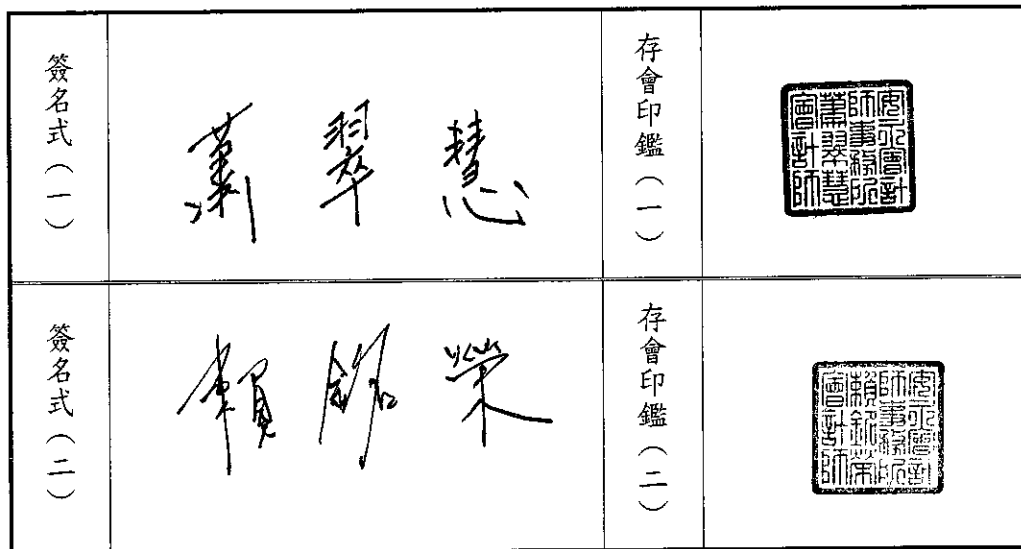 簽名式（一）
蕭翠慧
存會印鑑（一）
安永會計
師事務所
蕭翠慧
會計師
簽名式（二）
賴銘榮
存會印鑑（二）
安永會計
師事務所
會計師